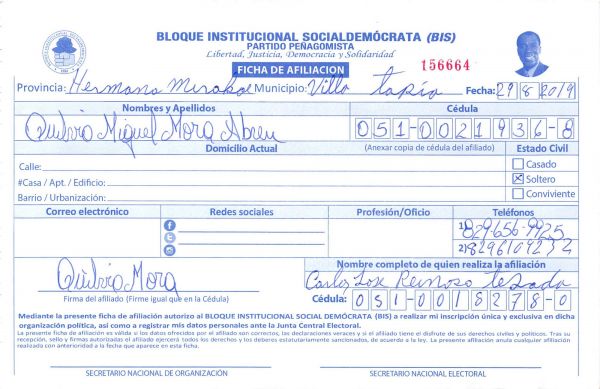 BLOQUE INSTITUCIONAL SOCIALDEMÓCRATA (BIS)
PARTIDO PEÑAGOMISTA
Libertad, Justicia, Democracia y Solidaridad
FICHA DE AFILIACION
156664
Provincia: Hermana Mirabal Municipio: Villa tapia Fecha: 29/8/2019
Nombres y Apellidos Cédula
Quilvio Miguel Mora Abreu 051-0021936-8
Domicilio Actual (Anexar copia de cédula del afiliado) Estado Civil
Calle: Casado
#Casa / Apt. / Edificio: Soltero
Barrio / Urbanización: Conviviente
Correo electrónico Redes sociales Profesión/Oficio Teléfonos
1) 829-656-9925
2)
Quilvio Mora
Firma del afiliado (Firme igual que en la Cédula)
Nombre completo de quien realiza la afiliación
Carlos Jose Reinoso tejada
Cédula: 051-0018278-0
Mediante la presente ficha de afiliación autorizo al BLOQUE INSTITUCIONAL SOCIAL DEMÓCRATA (BIS) a realizar mi inscripción única y exclusiva en dicha
organización política, así como a registrar mis datos personales ante la Junta Central Electoral.
La presente ficha de afiliación es válida si los datos ofrecidos por el afiliado son correctos, las declaraciones veraces y si el afiliado tiene el disfrute de sus derechos civiles y políticos. Tras su
recepción, sello y firmas autorizadas el afiliado ejercerá todos los derechos y los deberes estatutariamente sancionados, de acuerdo a la ley. La presente afiliación anula cualquier afiliación
realizada con anterioridad a la fecha que aparece en esta ficha.
SECRETARIO NACIONAL DE ORGANIZACIÓN SECRETARIO NACIONAL ELECTORAL